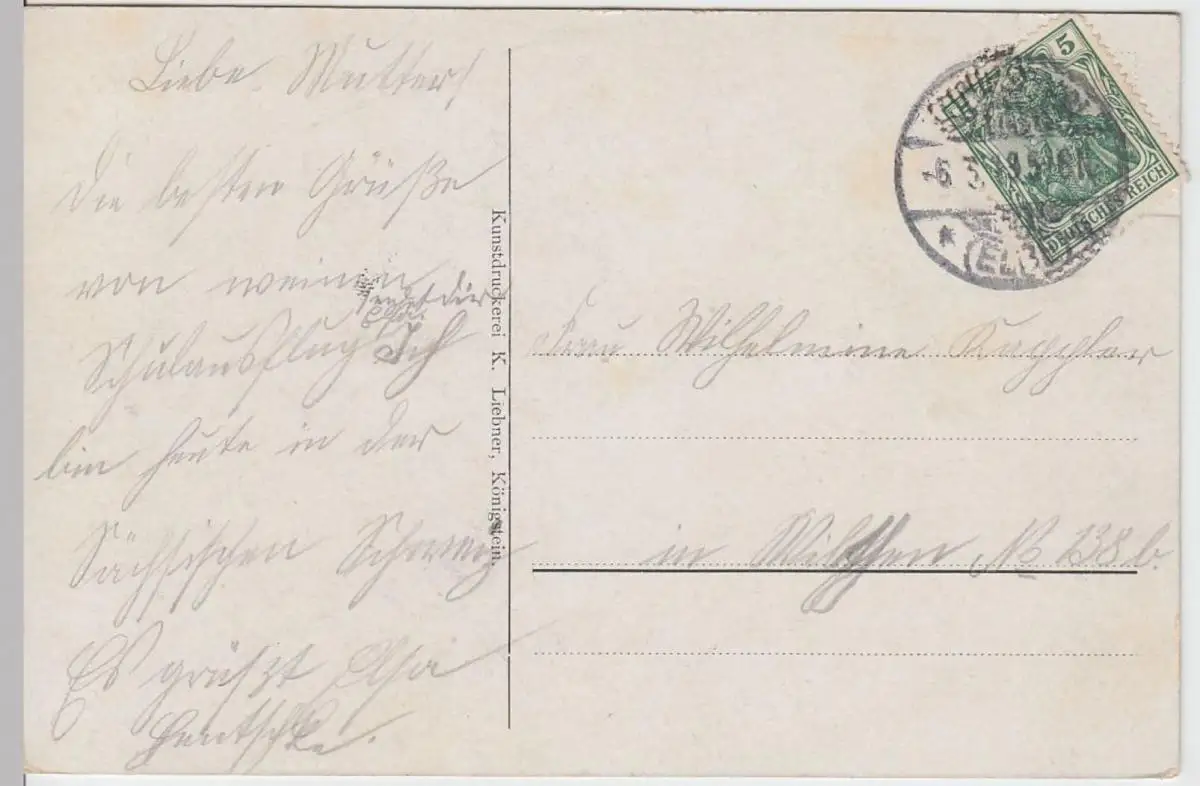 Liebe Mutter!
Die besten Grüße
von meinem
sendet dir
Schulausflug Ich
bin heute in der
Sächsischen Schweiz
Es grüßt Elsa
Hentschke.
Kunstdruckerei K. Liebner, Königstein.
5
DEUTSCHES REICH
-6 3
* (ELBE)
Frau Wilhelmine Kappler
in Wilthen № 138 b.